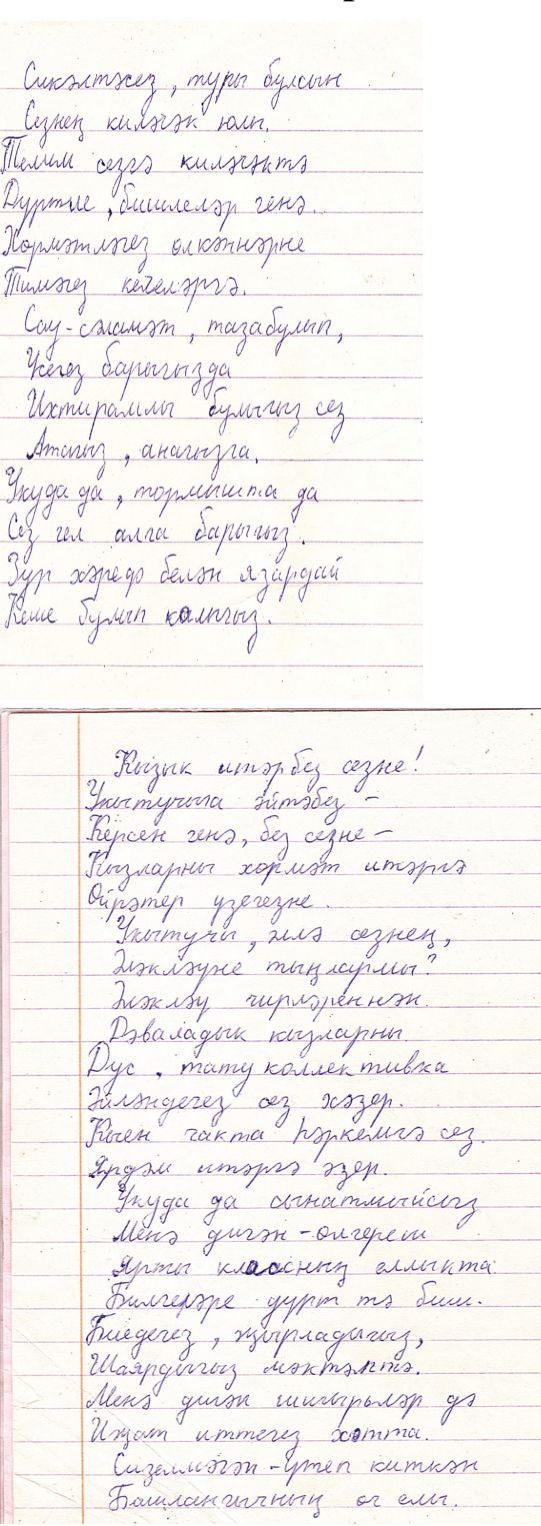 Сикәлтәсез, туры булсын
Сезнең киләчәк юлы.
Телим сезгә киләчәктә
Дүртле, бишлеләр генә.
Хөрмәтләгез өлкәннәрне
Тимәгез кечеләргә.
Сау-сәламәт, таза булып,
Үсегез барыгызда
Ихтирамлы булыгыз сез
Атагыз, анагызга.
Укуда да, тормышта да
Сез гел алга барыгыз.
Зур хәреф белән язардай
Кеше булып калыгыз.
Кызык итәрбез сезне!
Укытучыга әйтәбез –
Керсен генә, без сезне –
Кызларны хөрмәт итәргә
Өйрәтер үзегезне.
Укытучы, әллә сезнең,
Әләкләүне тыңлармы?
Әләкләү чирләреннән
Дәваладык кызларны.
Дус, тату коллективка
Әйләндегез сез хәзер.
Кыен чакта һәркемгә сез
Ярдәм итәргә әзер.
Укуда да сынатмыйсыз
Менә дигән - өлгереш
Ярты классның еллыкта
Билгеләре дүрт тә биш.
Биедегез, җырладыгыз,
Шаярдыгыз мәктәптә.
Менә дигән шигырьләр дә
Иҗат иттегез хәтта.
Сизелмәгән - үтеп киткән
Башлангычның өч елы.